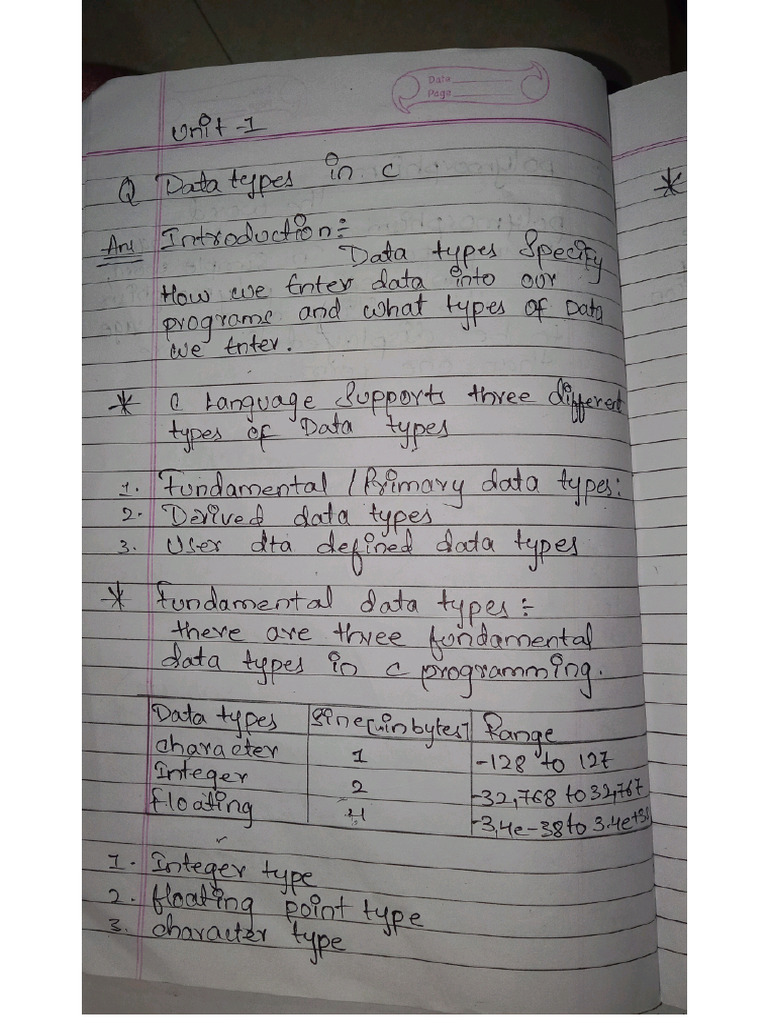 Data
Page
Unit-1
Q Data types in c
Ans Introduction :-
Data types Specify
How we Enter data into our
programs and what types of Data
we Enter.
* C Language Supports three different
types of Data types
1. Fundamental / Primary data types:
2. Derived data types
3. User dta defined data types
* Fundamental data types :-
there are three fundamental
data types in c programming.
Data types Sine[uinbytes] Range
character 1 -128 to 127
Integer 2 -32,768 to 32,767
floating 4 -3,4e-38 to 3.4e+38
1. Integer type
2. floating point type
3. character type
*